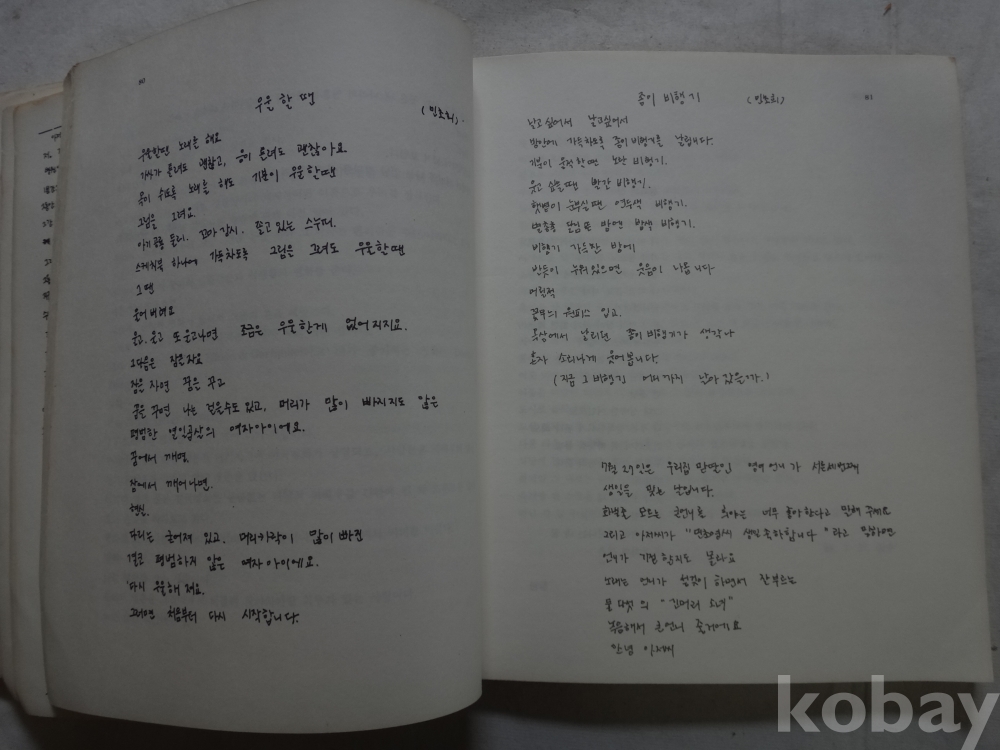 80
우울할 땐
(민초희).
우울할땐 노래를 해요
가사가 틀려도 괜찮고, 음이 틀려도 괜찮아요
목이 쉬도록 노래를 해도 기분이 우울할땐
그림을 그려요
아기공룡 둘리. 꼬마 감시. 졸고 있는 스누피.
스케치북 하나에 가득차도록 그림을 그려도 우울할땐
그땐
울어버려요
울고.울고 또 울고나면 조금은 우울한게 없어지지요.
그다음은 잠을 자요
잠을 자면 꿈을 꾸고
꿈을 꾸면 나는 걸을수도 있고, 머리가 많이 빠지지도 않은
평범한 열일곱살의 여자아이에요.
꿈에서 깨면.
잠에서 깨어나면.
현실.
다리는 굳어져 있고. 머리카락이 많이 빠진
결코 평범하지 않은 여자아이에요.
다시 우울해져요.
그러면 처음부터 다시 시작합니다.
종이 비행기
(민초희)
81
날고 싶어서 날고싶어서
방안에 가득차도록 종이 비행기를 날립니다.
기분이 울적할땐 노란 비행기.
웃고 싶을땐 빨간 비행기.
햇빛이 눈부실땐 연두색 비행기.
별송송 달님 뜬 밤엔 밤색 비행기.
비행기 가득찬 방에
반듯이 누워있으면 웃음이 나옵니다
어릴적
꽃무늬 원피스 입고.
옥상에서 날리던 종이비행기가 생각나
소리나게 웃어봅니다.
(지금 그 비행기 어디까지 날아갔을까.)
7월 29일은 우리집 맏딸인 언니가 서른세번째
생일을 맞는 날입니다.
모르는 큰언니를 너무 좋아한다고 말해 주세요
그리고 아저씨가 " 생일 축하합니다" 라고 말하면
언니가 기절할지도 몰라요
노래는 언니가 하면서 잘부르는
둘 다섯의 "긴머리 소녀"
녹음해서 큰언니 줄거에요
안녕 아저씨
kobay